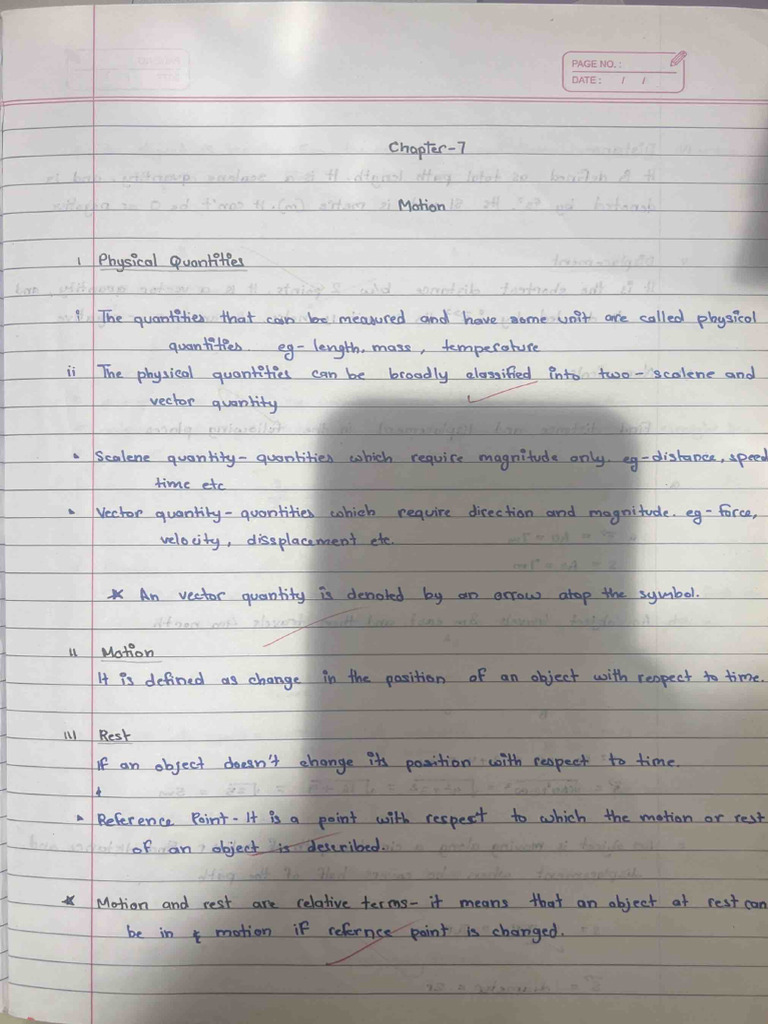 PAGE NO.:
DATE: / /
Chapter-7
Motion
i Physical Quantities
i The quantities that can be measured and have some unit are called physical
quantities. eg- length, mass, temperature
ii The physical quantities can be broadly classified into two- scalene and
vector quantity
• Scalene quantity- quantities which require magnitude only. eg-distance, speed
time etc
• Vector quantity- quantities which require direction and magnitude. eg- force,
velocity, dissplacement etc.
* An vector quantity is denoted by an arrow atop the symbol.
ii Motion
It is defined as change in the position of an object with respect to time.
iii Rest
If an object doesn't change its position with respect to time.
• Reference Point- It is a point with respect to which the motion or rest
of an object is described.
* Motion and rest are relative terms- it means that an object at rest can
be in motion if refernce point is changed.